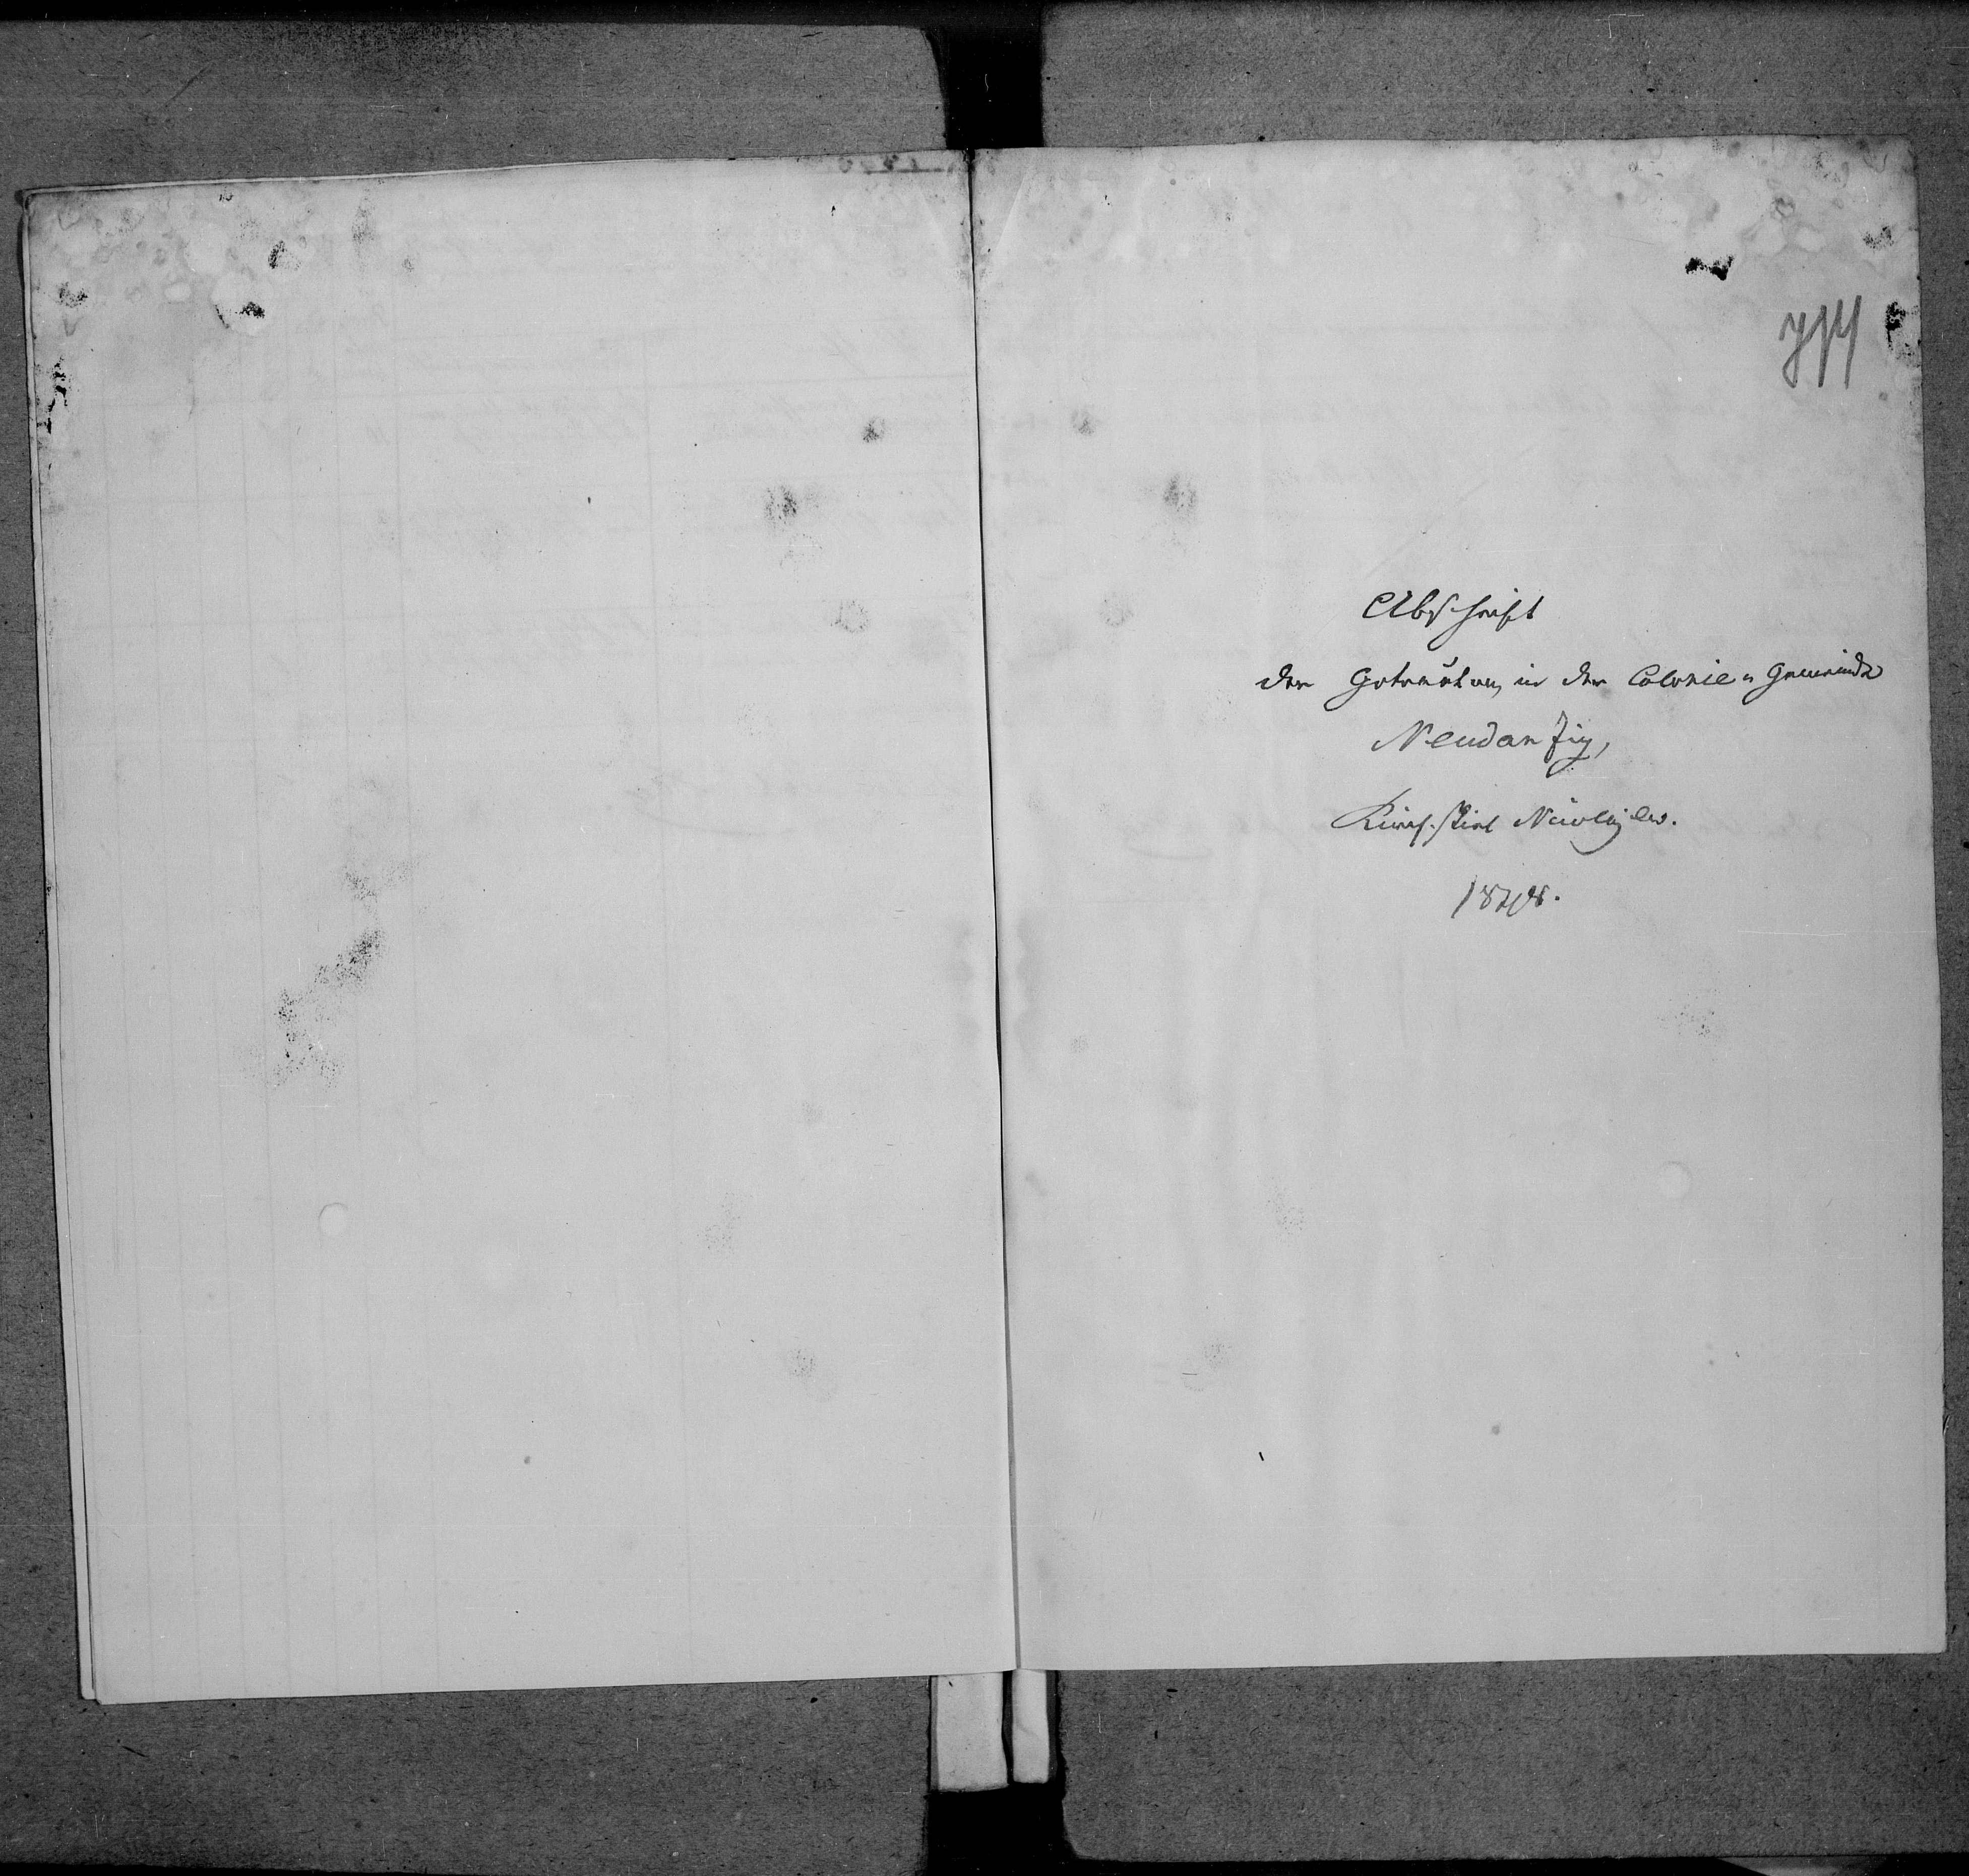 Abschrift
der Getrauten in der Colonie-Gemeinde
Neudanzig,
Kirchspiel Nicolajew.